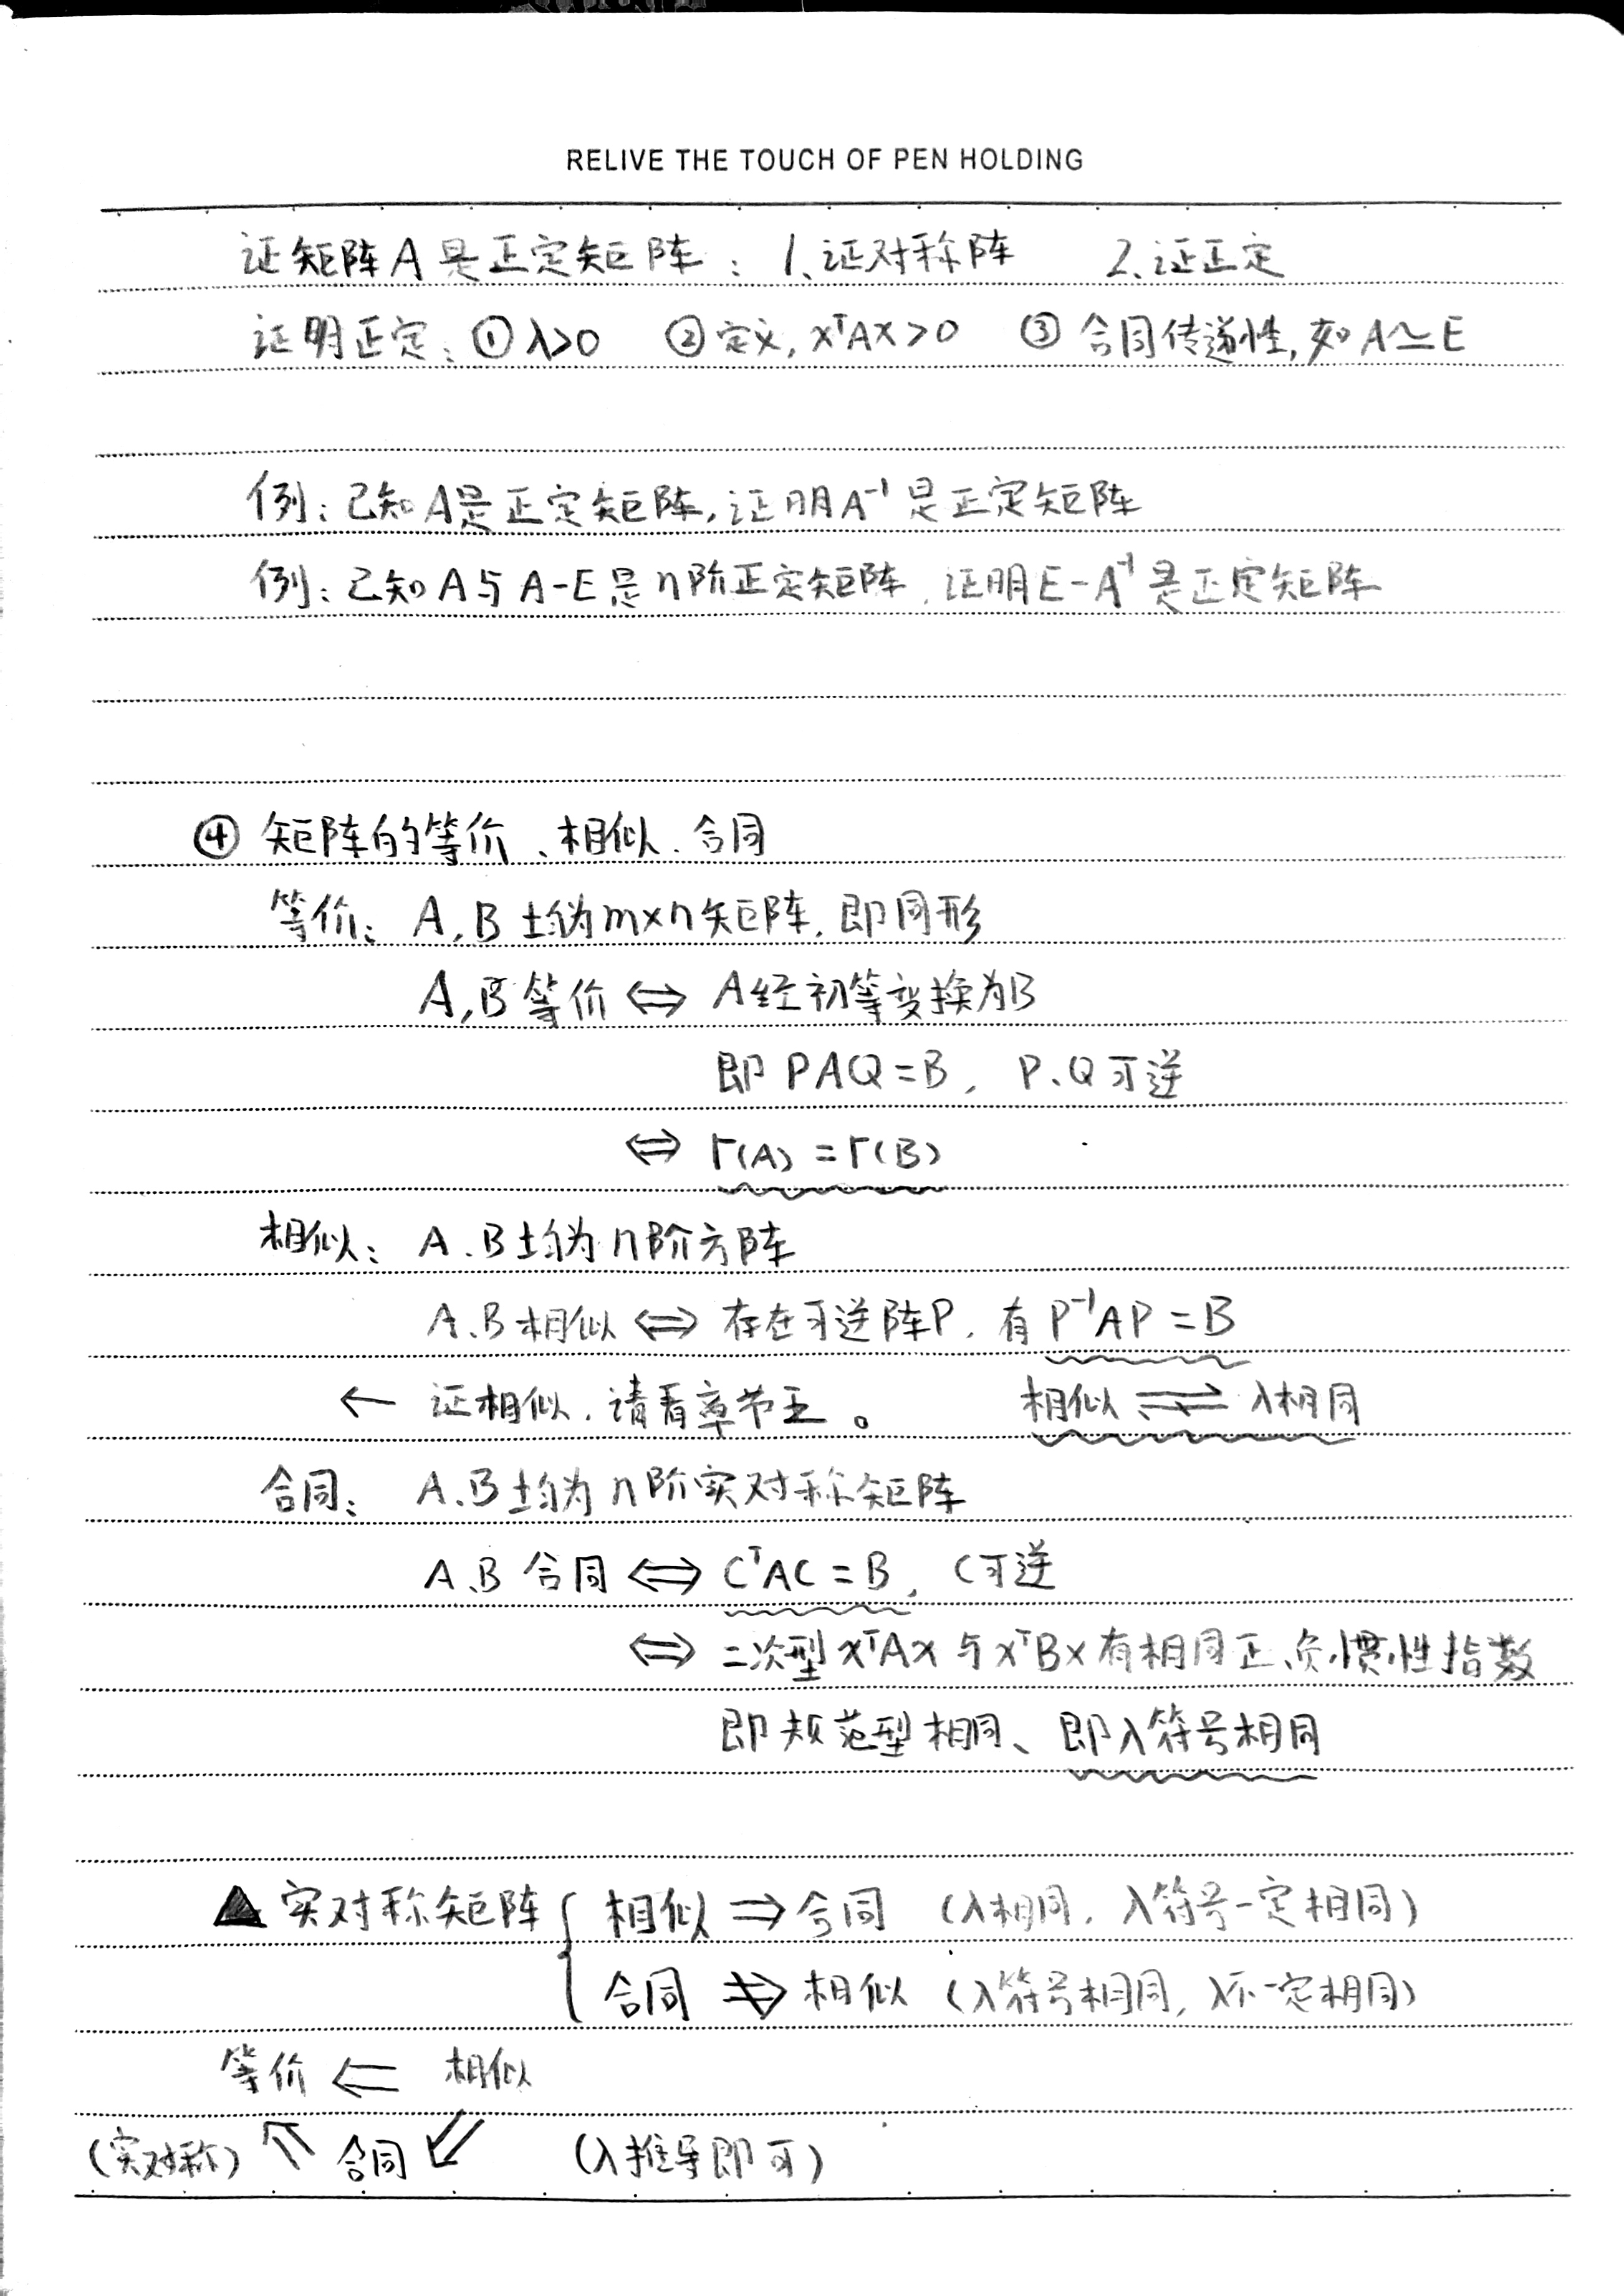 RELIVE THE TOUCH OF PEN HOLDING
证矩阵A是正定矩阵：1、证对称阵 2、证正定
证明正定：①λ>0 ②定义，xᵀAx>0 ③合同传递性，如A≃E
例：已知A是正定矩阵，证明A⁻¹是正定矩阵
例：已知A与A-E是n阶正定矩阵，证明E-A⁻¹是正定矩阵
④ 矩阵的等价、相似、合同
等价：A,B均为m×n矩阵，即同形
A,B等价⇔A经初等变换为B
即PAQ=B，P、Q可逆
⇔ r(A)=r(B)
相似：A、B均为n阶方阵
A、B相似⇔存在可逆阵P，有P⁻¹AP=B
← 证相似，请看章节五。 相似⇌λ相同
合同：A、B均为n阶实对称矩阵
A、B合同⇔CᵀAC=B，C可逆
⇔ 二次型xᵀAx与xᵀBx有相同正、负惯性指数
即规范型相同、即λ符号相同
▲实对称矩阵{ 相似⇒合同（λ相同，λ符号一定相同）
合同⇏相似（λ符号相同，λ不一定相同）
等价⇐相似
（实对称）⇖合同⇙ （λ推导即可）